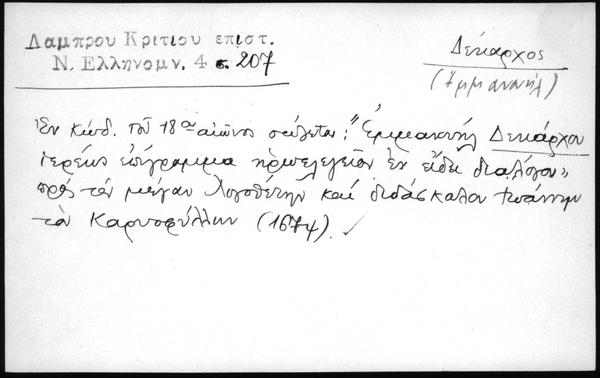 Λαμπρου Κριτιου επιστ.
Ν. Ελληνομν. 4 σ. 207
Δεκαρχος
(Ἐμμανουήλ)
Ἐν κώδ. τοῦ 18ου αἰῶνος σώζεται: "Ἐμμανουήλ Δεκάρχου
ἱερέως ἐπίγραμμα ἡρωελεγεῖον ἐν εἴδει διαλόγου"
πρὸς τὸν μέγαν λογοθέτην καὶ διδάσκαλον Ἰωάννην
τὸν Καρυοφύλλην (1674).